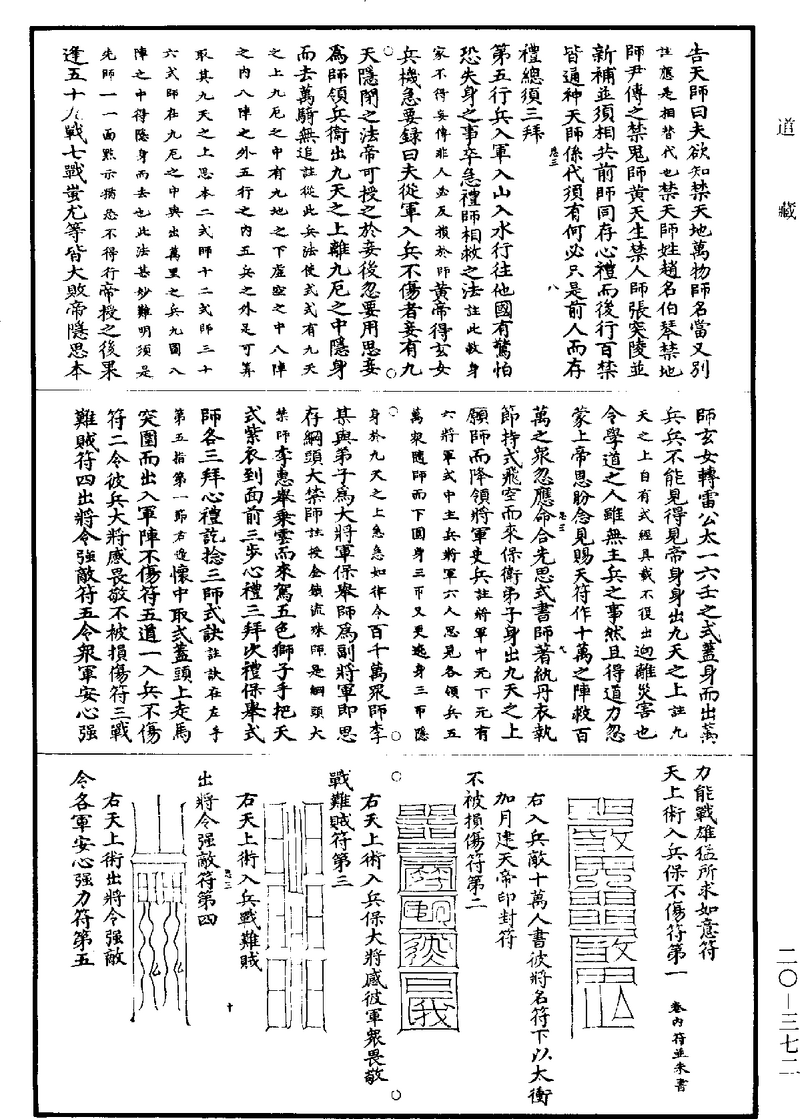 道藏
告天師曰夫欲知禁天地萬物師名當又別
註應是相替代也禁天師姓趙名伯犖禁地
師尹傳之禁鬼師黃天生禁人師張突陵並
新補並須相共前師同存心禮而後行百禁
皆通神天師係代須有何必只是前人而存
卷三 八
禮總須三拜
第五行兵入軍入山入水行往他國有驚怕
恐失身之事卒急禮師相救之法註此救身
家不得妄傳非人必反損於師黃帝得玄女
兵機急要錄曰夫從軍入兵不傷者妾有九
天隱閉之法帝可授之於妾後忽要用思妾
為師領兵衛出九天之上離九厄之中隱身
而去萬騎無追註從此兵法使式式有九天
之上九厄之中有九地之下虛空之中八陣
之內八陣之外五行之內五兵之外足可算
取其九天之上思本二式師十二式師三十
六式師在九厄之中與出萬里之兵九圍八
陣之中得隱身而去也此法甚妙難明須是
先師一一面點示猶恐不得行帝授之後果
逢五十九戰七戰蚩尤等皆大敗帝隱思本
師玄女轉雷公太一六壬之式蓋身而出萬
兵兵不能見得見帝身身出九天之上註九
天之上自有式經具載不復出迴離災害也
令學道之人雖無主兵之事然且得道力忽
蒙上帝思盼念見賜天符作十萬之陣救百
卷三 九
萬之眾忽應命合先思式書師著紈丹衣執
節持式飛空而來保衛弟子身出九天之上
願師而降領將軍吏兵註將軍中元下元有
六將軍式中主兵將軍六人思見各領兵五
萬衆隨師而下圍身三帀又更遶身三帀隱
身於九天之上急急如律令百千萬眾師李
某與弟子為大將軍保舉師為副將軍即思
存網頭大禁師註披金鎖流珠師是網頭大
禁師李惠舉乘雲而來駕五色獅子手把天
式紫衣到面前三步心禮三拜次禮保舉式
師各三拜心禮訖捻三師式訣註訣在左手
第五指第一節右邊懷中取式蓋頭上走馬
突圍而出入軍陣不傷符五道一入兵不傷
符二令彼兵大將感畏敬不被損傷符三戰
難賊符四出將令強敵符五令眾軍安心強
力能戰雄猛所求如意符
天上術入兵保不傷符第一 卷內符並朱書
右入兵敵十萬人書彼將名符下以太衝
加月建天帝印封符
不被損傷符第二
右天上術入兵保大將感彼軍眾畏敬
戰難賊符第三
右天上術入兵戰難賊
卷三 十
出將令強敵符第四
右天上術出將令強敵
令各軍安心強力符第五
二〇—三七二